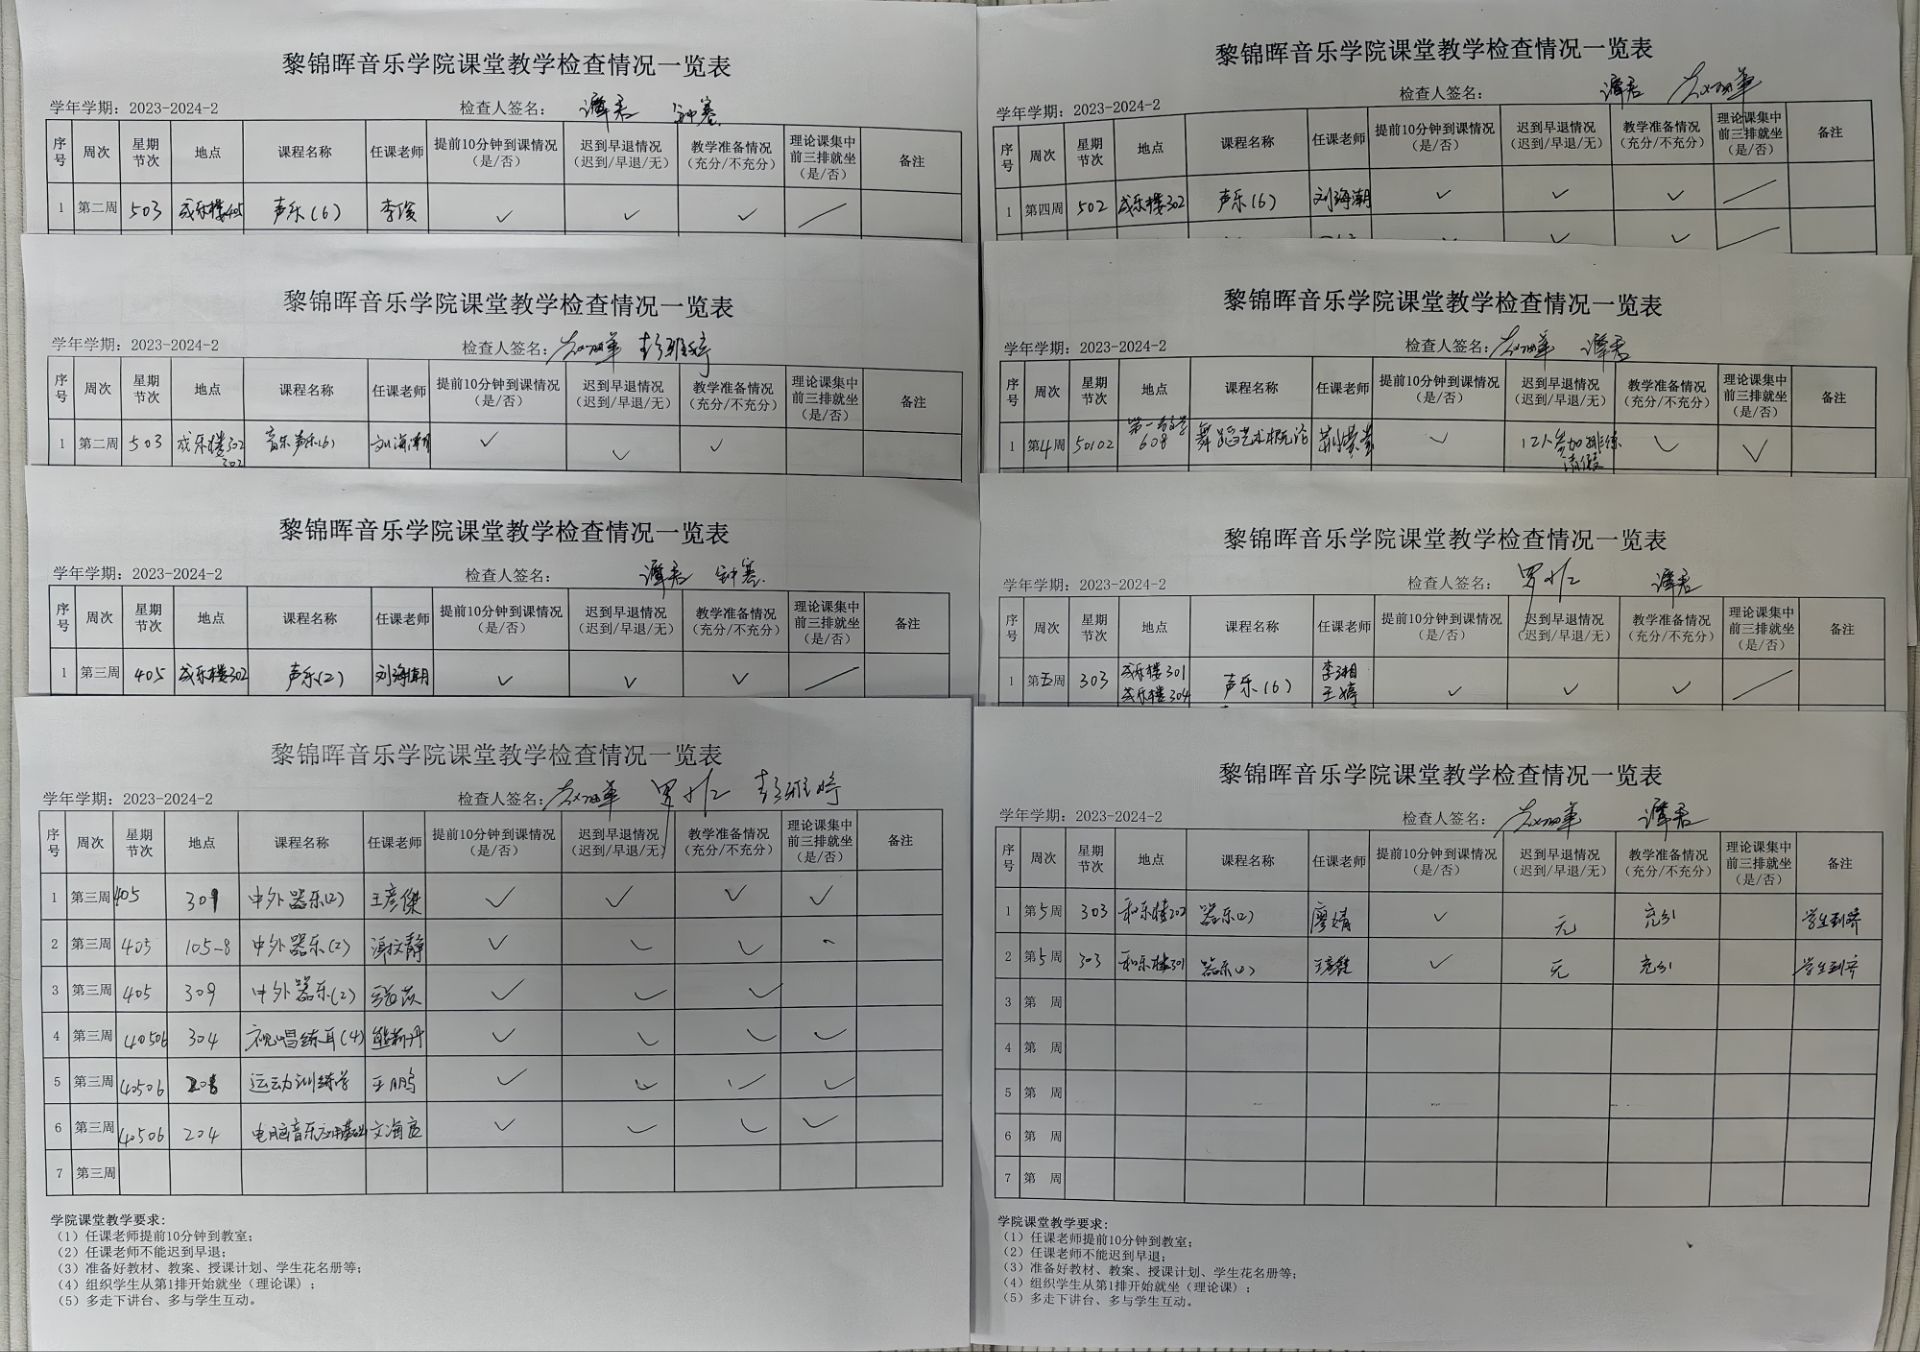 黎锦晖音乐学院课堂教学检查情况一览表
学年学期：2023-2024-2 检查人签名：谭君
序号 周次 星期节次 地点 课程名称 任课老师 提前10分钟到课情况（是/否） 迟到早退情况（迟到/早退/无） 教学准备情况（充分/不充分） 理论课集中前三排就坐（是/否） 备注
1 第二周 503 成乐楼405 声乐(6) 李 ✓ ✓ ✓ ／
黎锦晖音乐学院课堂教学检查情况一览表
学年学期：2023-2024-2 检查人签名：
序号 周次 星期节次 地点 课程名称 任课老师 提前10分钟到课情况（是/否） 迟到早退情况（迟到/早退/无） 教学准备情况（充分/不充分） 理论课集中前三排就坐（是/否） 备注
1 第二周 503 成乐楼302 302 音乐声乐(6) 刘海潮 ✓ ✓ ✓
黎锦晖音乐学院课堂教学检查情况一览表
学年学期：2023-2024-2 检查人签名：谭君
序号 周次 星期节次 地点 课程名称 任课老师 提前10分钟到课情况（是/否） 迟到早退情况（迟到/早退/无） 教学准备情况（充分/不充分） 理论课集中前三排就坐（是/否） 备注
1 第三周 405 成乐楼302 声乐(2) 刘海潮 ✓ ✓ ✓ ／
黎锦晖音乐学院课堂教学检查情况一览表
学年学期：2023-2024-2 检查人签名：
序号 周次 星期节次 地点 课程名称 任课老师 提前10分钟到课情况（是/否） 迟到早退情况（迟到/早退/无） 教学准备情况（充分/不充分） 理论课集中前三排就坐（是/否） 备注
1 第三周 405 309 中外器乐(2) 王彦傑 ✓ ✓ ✓ ✓
2 第三周 405 105-8 中外器乐(2) 谭文静 ✓ ✓ ✓
3 第三周 405 309 中外器乐(2) ✓ ✓ ✓
4 第三周 40506 304 视唱练耳(4) 熊莉丹 ✓ ✓ ✓ ✓
5 第三周 40506 208 运动训练学 王鹏 ✓ ✓ ✓ ✓
6 第三周 40506 204 电脑音乐应用基础 文海 ✓ ✓ ✓ ✓
7 第三周
学院课堂教学要求：
（1）任课老师提前10分钟到教室；
（2）任课老师不能迟到早退；
（3）准备好教材、教案、授课计划、学生花名册等；
（4）组织学生从第1排开始就坐（理论课）；
（5）多走下讲台、多与学生互动。
黎锦晖音乐学院课堂教学检查情况一览表
学年学期：2023-2024-2 检查人签名：谭君
序号 周次 星期节次 地点 课程名称 任课老师 提前10分钟到课情况（是/否） 迟到早退情况（迟到/早退/无） 教学准备情况（充分/不充分） 理论课集中前三排就坐（是/否） 备注
1 第四周 502 成乐楼302 声乐(6) 刘海潮 ✓ ✓ ✓ ／
黎锦晖音乐学院课堂教学检查情况一览表
学年学期：2023-2024-2 检查人签名：谭君
序号 周次 星期节次 地点 课程名称 任课老师 提前10分钟到课情况（是/否） 迟到早退情况（迟到/早退/无） 教学准备情况（充分/不充分） 理论课集中前三排就坐（是/否） 备注
1 第4周 50102 第一教学 608 舞蹈艺术概论 ✓ 12人参加排练请假 ✓ ✓
黎锦晖音乐学院课堂教学检查情况一览表
学年学期：2023-2024-2 检查人签名：谭君
序号 周次 星期节次 地点 课程名称 任课老师 提前10分钟到课情况（是/否） 迟到早退情况（迟到/早退/无） 教学准备情况（充分/不充分） 理论课集中前三排就坐（是/否） 备注
1 第五周 303 成乐楼301 成乐楼304 声乐(6) 李湘 王婷 ✓ ✓ ✓ ／
黎锦晖音乐学院课堂教学检查情况一览表
学年学期：2023-2024-2 检查人签名：谭君
序号 周次 星期节次 地点 课程名称 任课老师 提前10分钟到课情况（是/否） 迟到早退情况（迟到/早退/无） 教学准备情况（充分/不充分） 理论课集中前三排就坐（是/否） 备注
1 第5周 303 和乐楼202 器乐(2) 廖婧 ✓ 无 充分 学生到齐
2 第5周 303 和乐楼301 器乐(2) ✓ 无 充分 学生到齐
3 第 周
4 第 周
5 第 周
6 第 周
7 第 周
学院课堂教学要求：
（1）任课老师提前10分钟到教室；
（2）任课老师不能迟到早退；
（3）准备好教材、教案、授课计划、学生花名册等；
（4）组织学生从第1排开始就坐（理论课）；
（5）多走下讲台、多与学生互动。